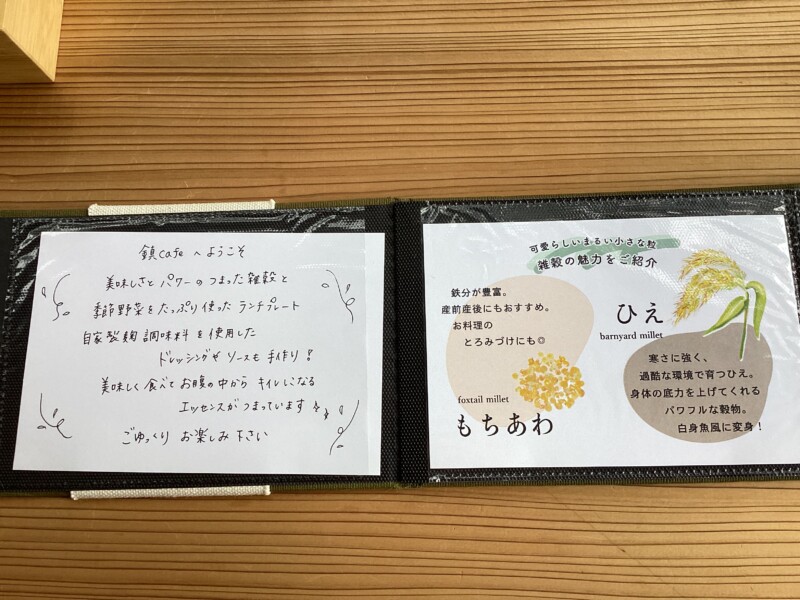 鎮cafe へようこそ
美味しさと パワーのつまった雑穀と
季節野菜をたっぷり使った ランチプレート
自家製麹調味料を使用した
ドレッシングや ソースも手作り!
美味しく食べて お腹の中から キレイになる
エッセンスがつまっています
ごゆっくり お楽しみ下さい
可愛らしいまるい小さな粒
雑穀の魅力をご紹介
鉄分が豊富。
産前産後にもおすすめ。
お料理の
とろみづけにも◎
foxtail millet
もちあわ
ひえ
barnyard millet
寒さに強く、
過酷な環境で育つひえ。
身体の底力を上げてくれる
パワフルな穀物。
白身魚風に変身!